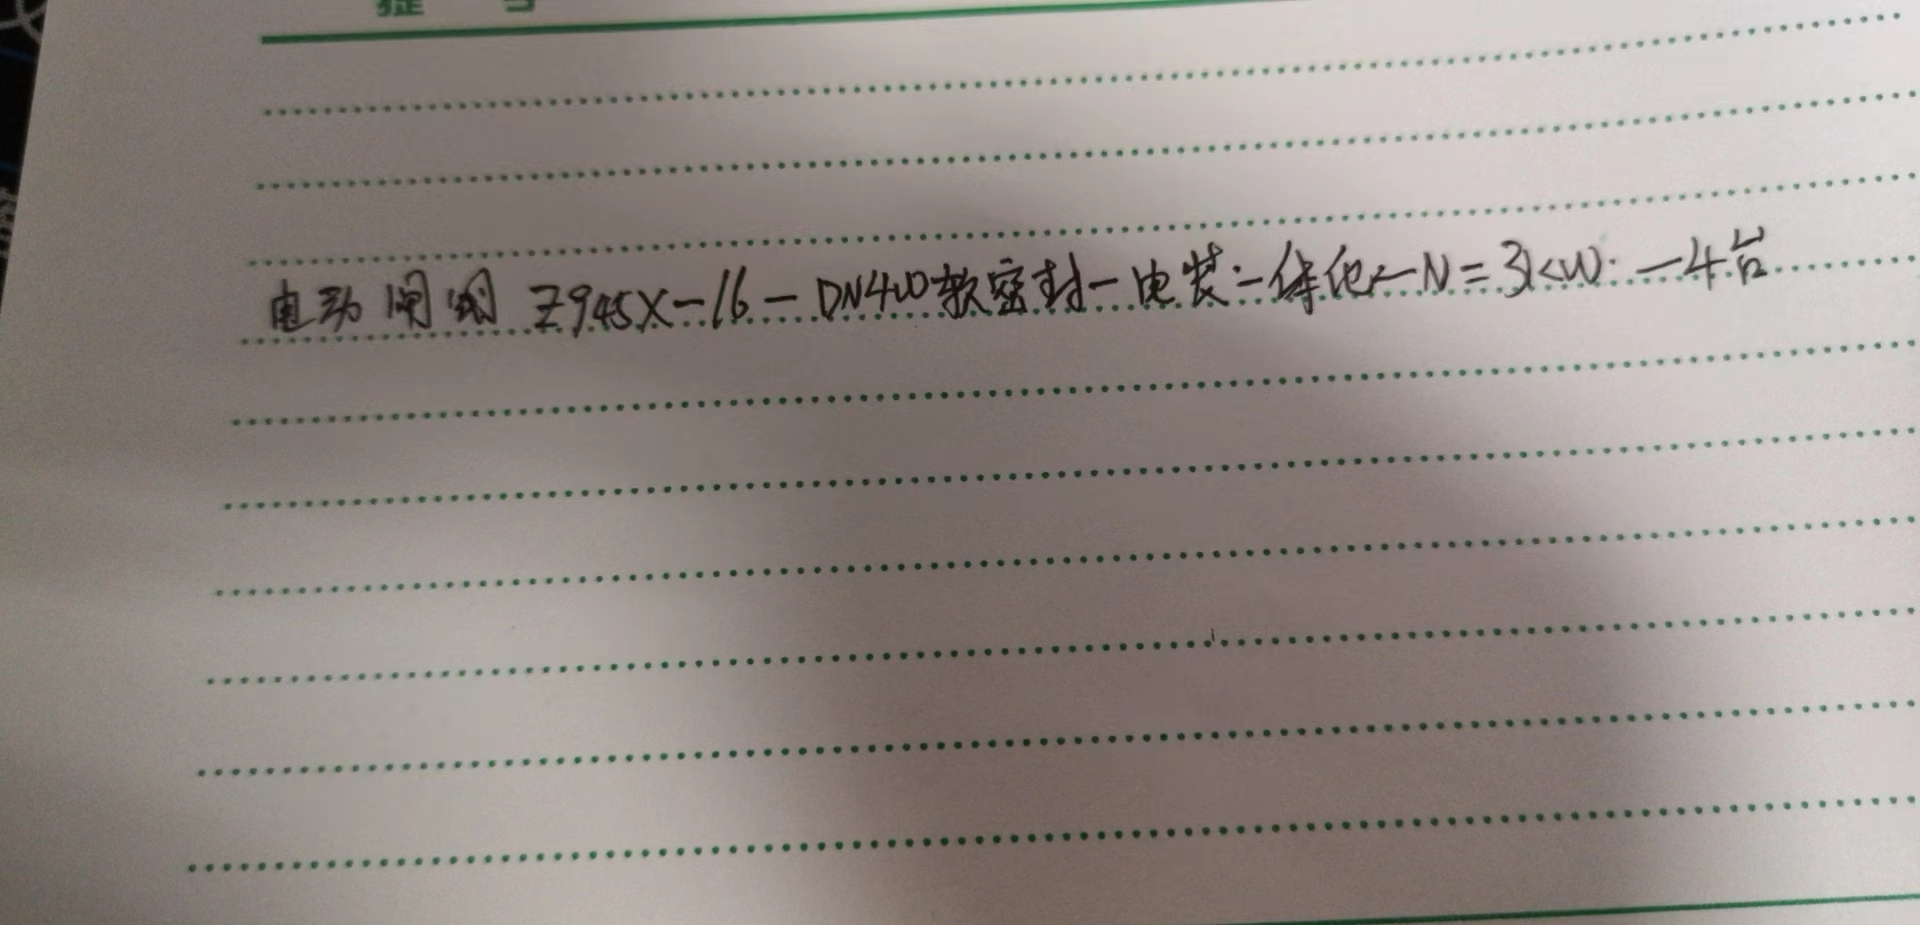 电动闸阀 Z945X-16-DN400软密封-电装:一体化-N=3KW.-4台